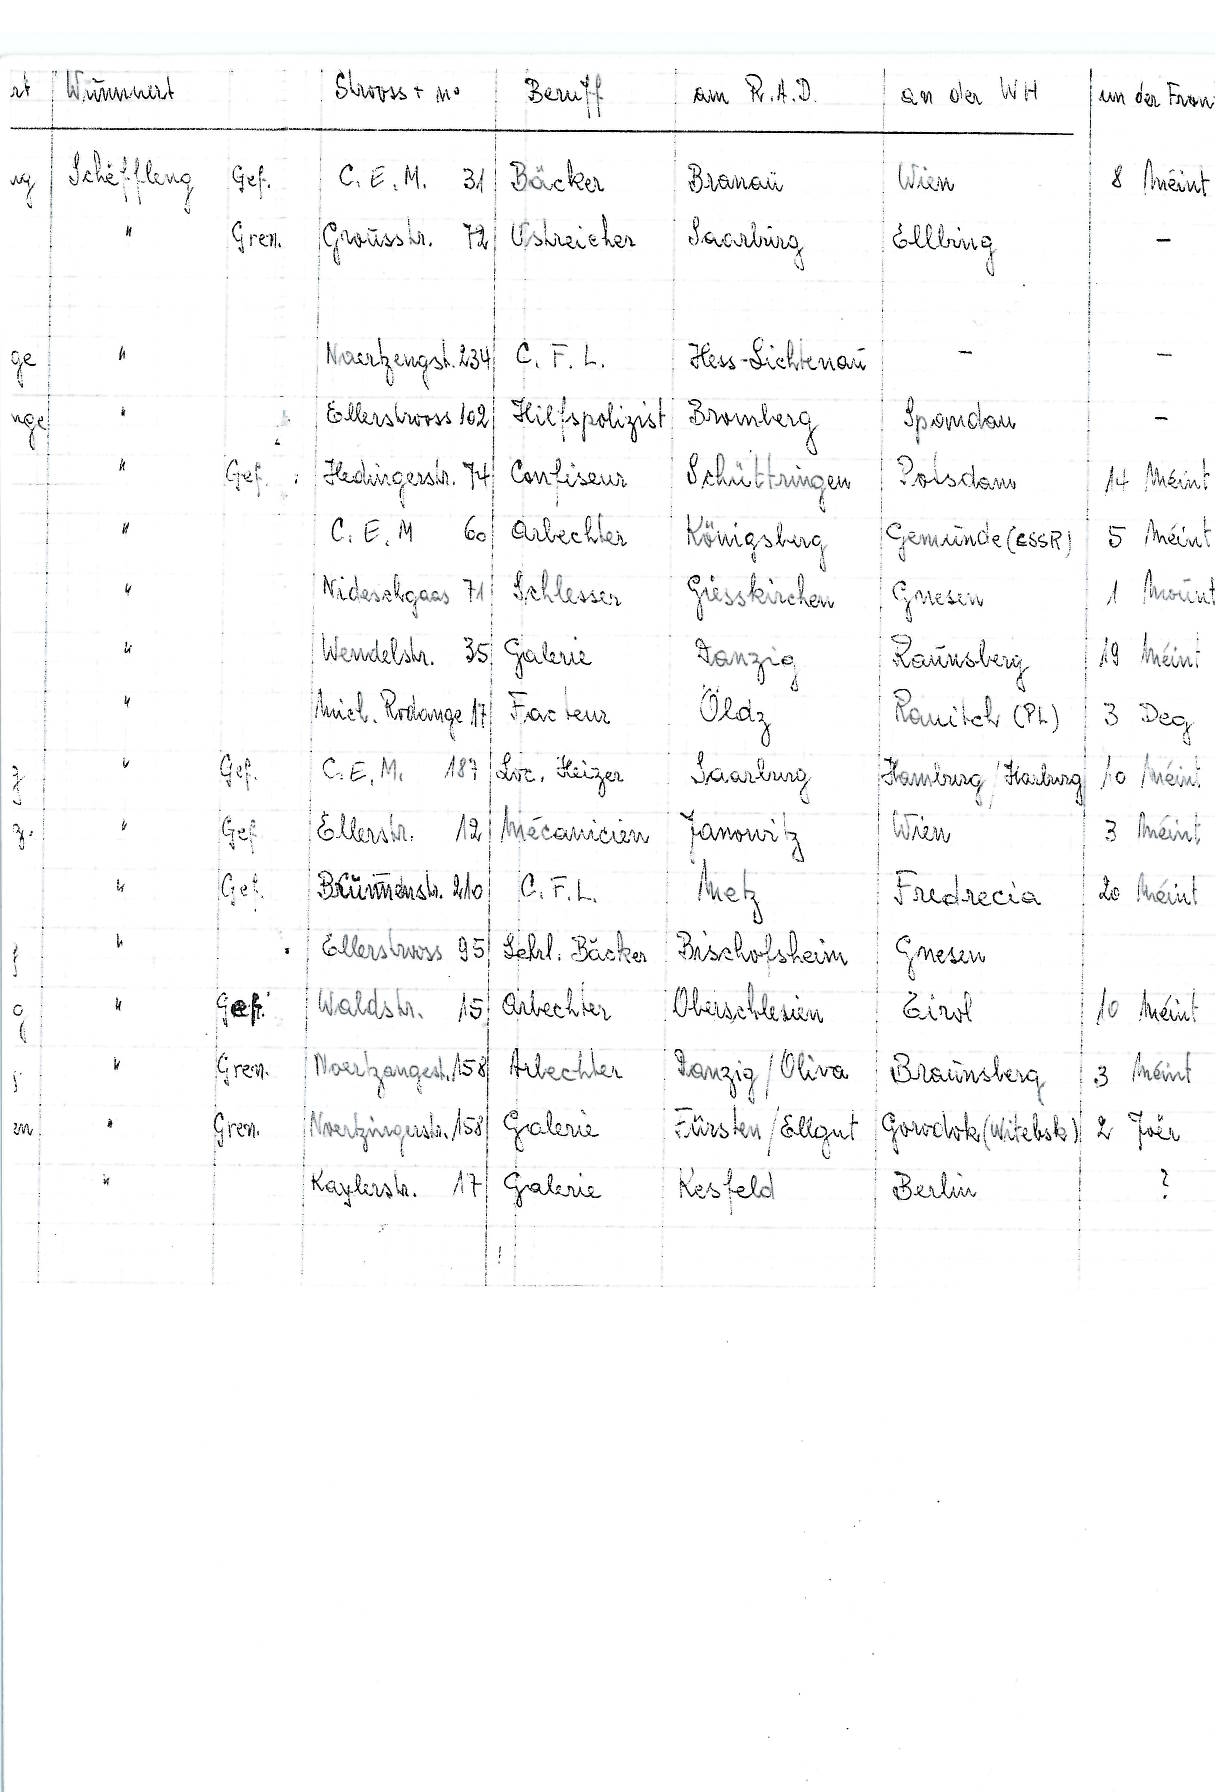 rt Wunnuert Strooss + no Beruff am R.A.D. an der WH un der Fron
ng Schëffleng Gef. C.E.M. 31 Bäcker Branaü Wien 8 Méint
" Gren. Groüsstr. 72 Ustreicher Saarbürg Ellbing –
ge " Noertzengst. 234 C.F.L. Hess-Lichtenaü – –
nge " Ellerstrooss 102 Hilfspolizist Bromberg Spandau –
" Gef. Hedingerstr. 74 Confiseur Schüttringen Potsdam 14 Méint
" C.E.M 60 Arbechter Königsberg Gemünde (CSSR) 5 Méint
" Nideschgaas 71 Schlesser Giesskirchen Gnesen 1 Mount
" Wendelstr. 35 Galerie Danzig Raünsberg 19 Méint
" Mich. Rodange 17 Facteur Öldz Ranitch (PL) 3 Deg
g " Gef. C.E.M. 187 Loc. Heizer Saarburg Hamburg/Harburg 10 Méint
z. " Gef Ellerstr. 12 Mécanicien Janowitz Wien 3 Méint
" Gef. Brünnenstr. 210 C.F.L. Metz Fredrecia 20 Méint
" Ellerstrooss 95 Lehrl. Bäcker Bischofsheim Gnesen
g " Gef. Waldstr. 15 Arbechter Oberschlesien Tirol 10 Méint
" Gren. Noertzangest. 158 Arbechter Danzig/Oliva Braünsberg 3 Méint
en " Gren. Noertzingerstr. 158 Galerie Fürsten/Ellgut Gorodok (Witebsk) 2 Joër
" Kaylerstr. 17 Galerie Kesfeld Berlin ?